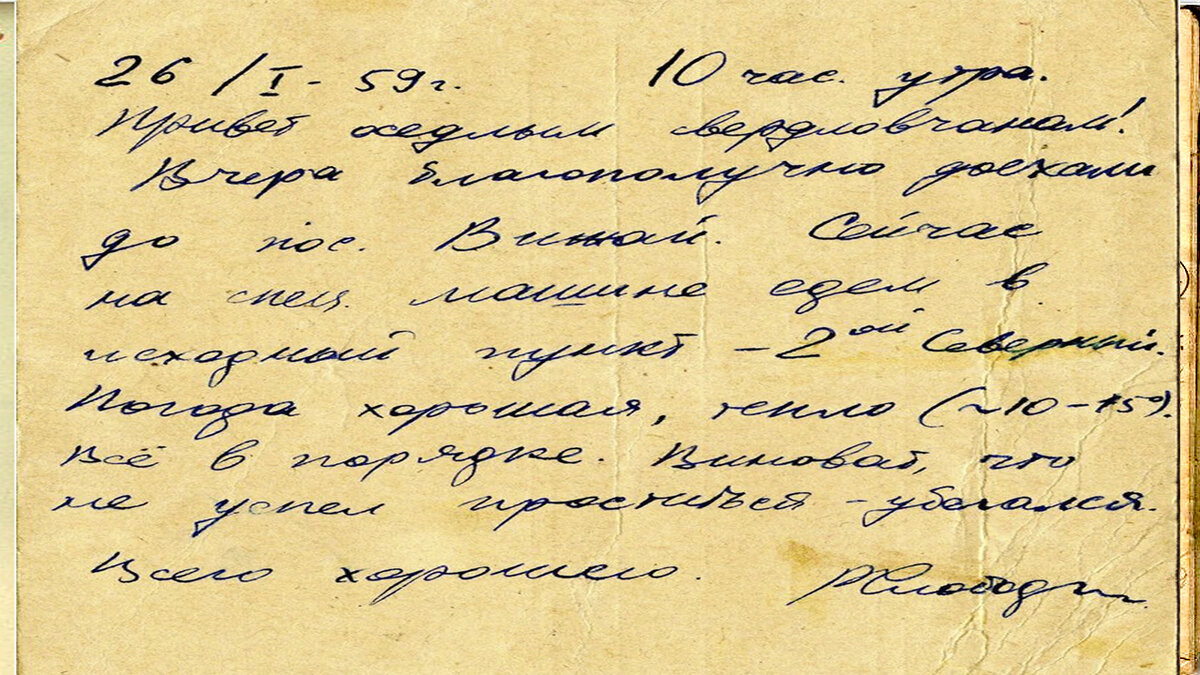 26 / I - 59 г. 10 час. утра.
Привет оседлым свердловчанам!
Вчера благополучно доехали
до пос. Вижай. Сейчас
на спец. машине едем в
исходный пункт – 2ой Северный.
Погода хорошая, тепло (~10–15°).
Всё в порядке. Виноват, что
не успел проститься – убегался.
Всего хорошего. РСлободин